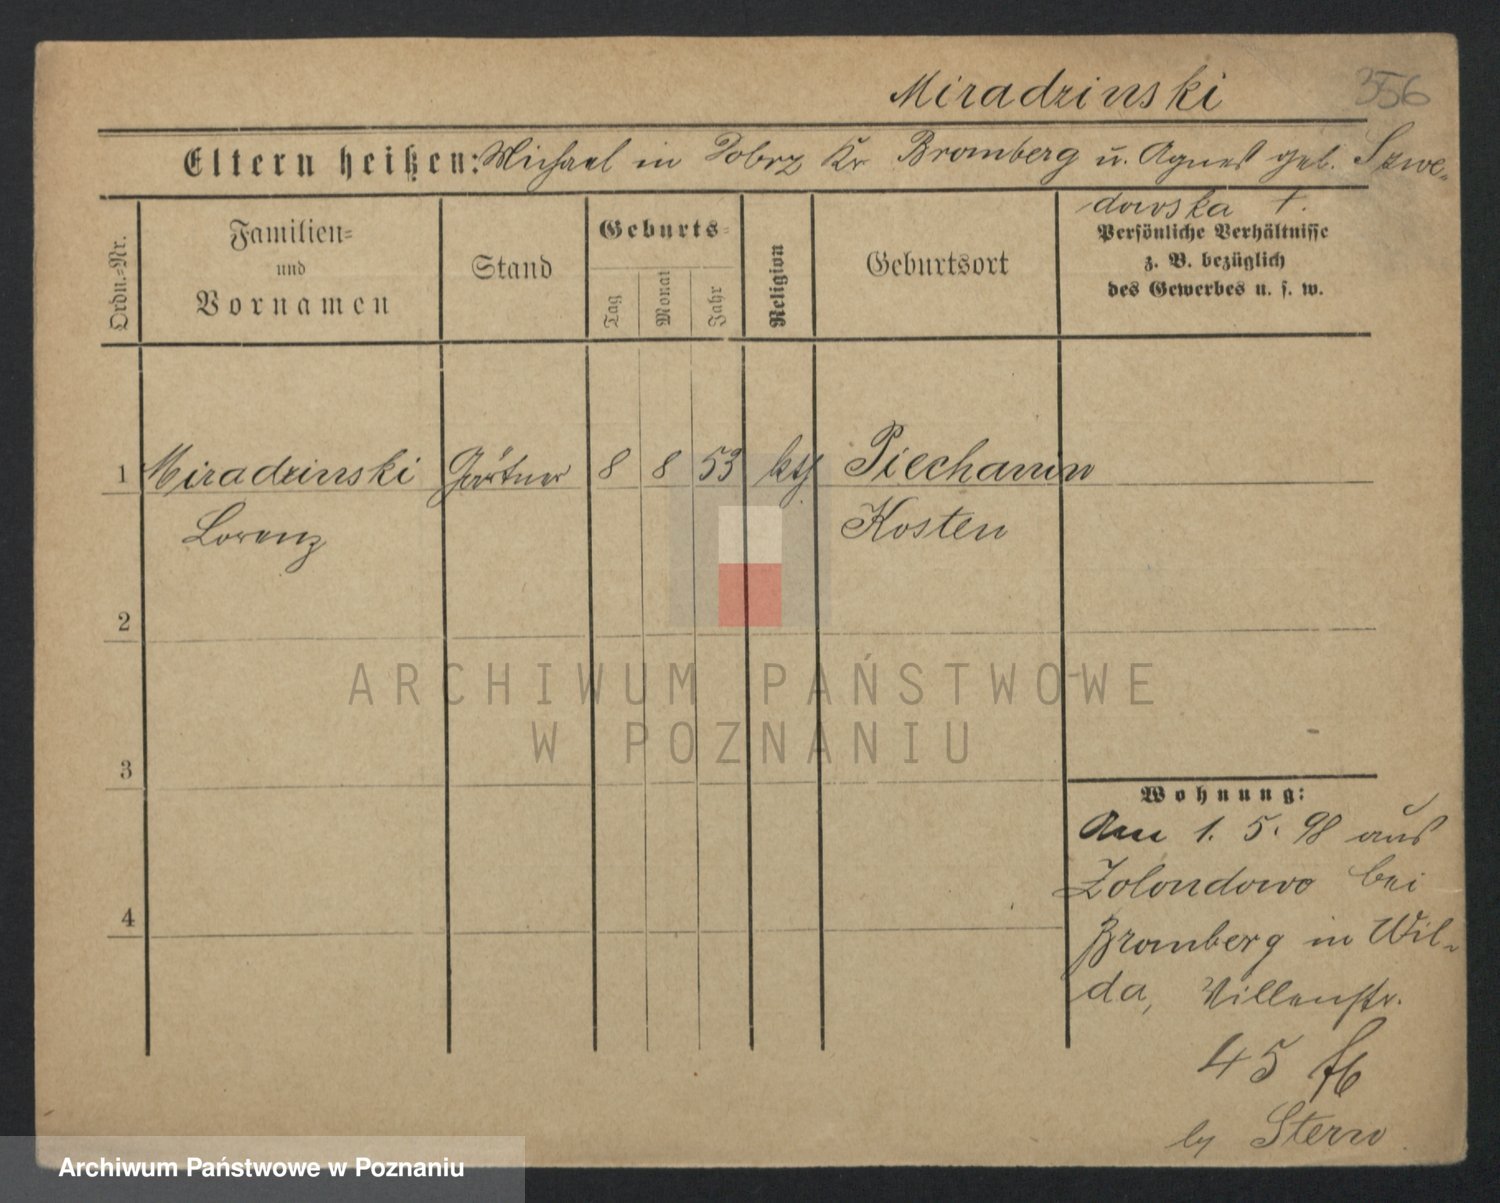 Miradzinski 356
Eltern heißen: Michael in Dobrz Kr Bromberg u. Agnes geb. Szwe-
dowska †.
Ordn.-Nr.
Familien-
und
Vornamen
Stand
Geburts-
Tag
Monat
Jahr
Religion
Geburtsort
Persönliche Verhältnisse
z. B. bezüglich
des Gewerbes u. s. w.
1 Miradzinski Gärtner 8 8 53 kth Piechanin
Lorenz Kosten
2
3
4
Wohnung:
Am 1. 5. 98 aus
Zolondowo bei
Bromberg in Wil-
da, Villenstr.
45
by Stern
ARCHIWUM PAŃSTWOWE
W POZNANIU
Archiwum Państwowe w Poznaniu